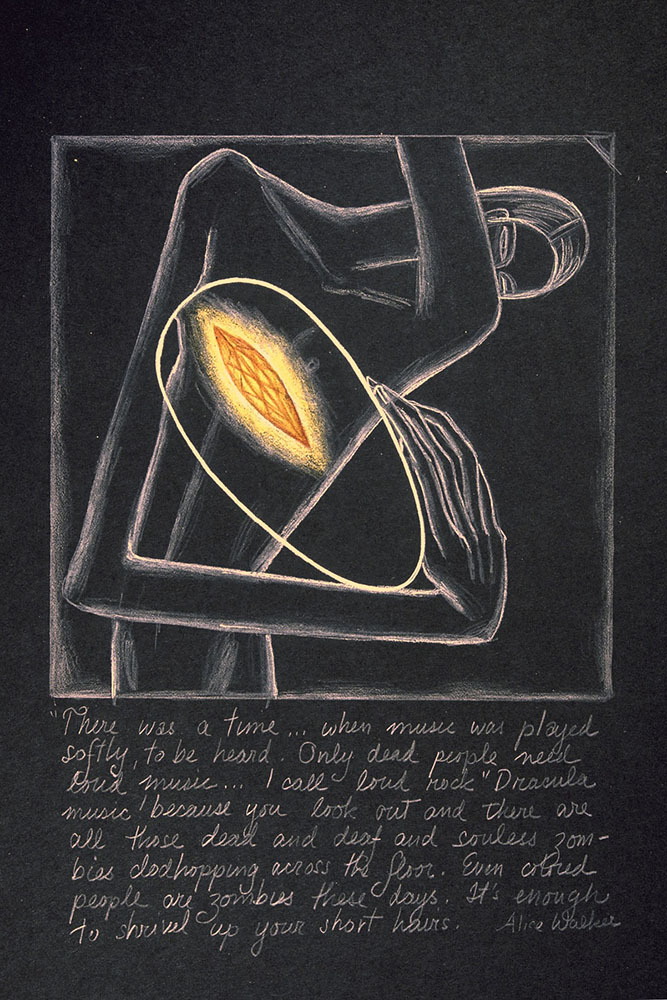 "There was a time... when music was played
softly, to be heard. Only dead people need
loud music... I call loud rock "Dracula
music' because you look out and there are
all those dead and deaf and souless zom-
bies clodhopping across the floor. Even colored
people are zombies these days. It's enough
to shrivel up your short hairs. Alice Walker